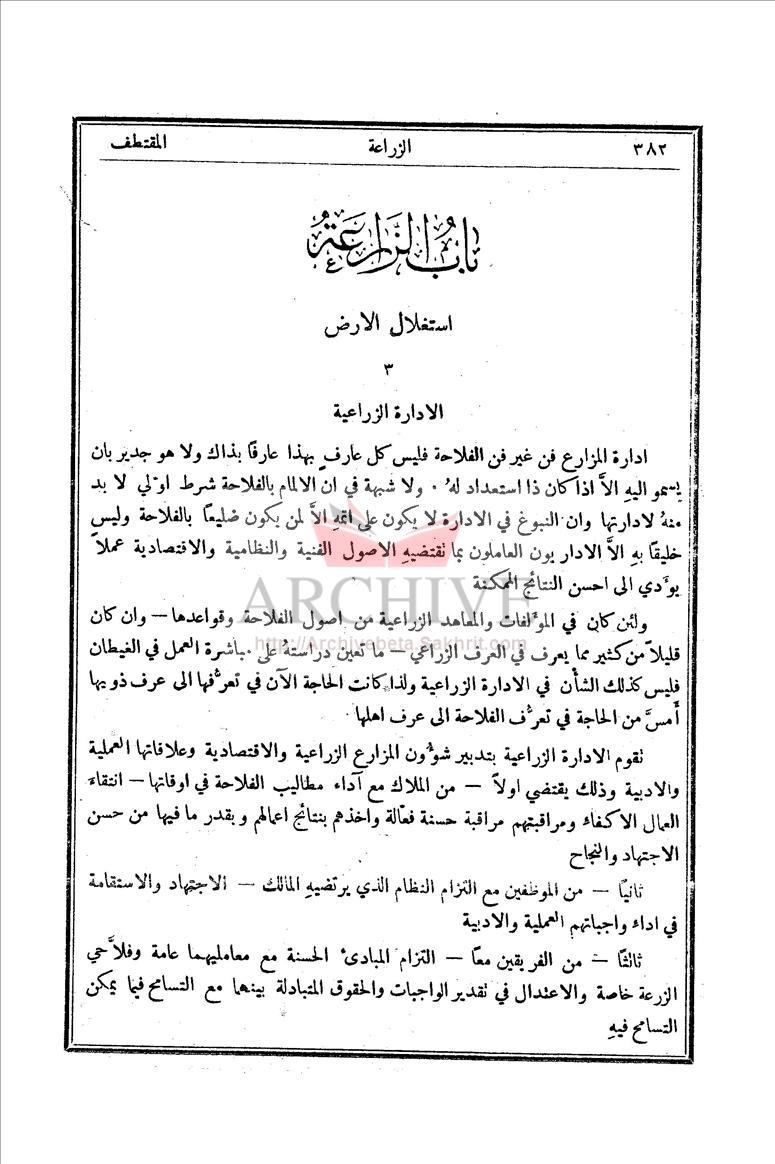 ٣٨٢ الزراعة المقتطف
باب الزراعة
استغلال الارض
٣
الادارة الزراعية
ادارة المزارع فن غير فن الفلاحة فليس كل عارف بهذا عارفًا بذاك ولا هو جدير بان
يسمو اليهِ الاَّ اذا كان ذا استعداد لهُ . ولا شبهة في ان الالمام بالفلاحة شرط اوَّلي لا بد
منهُ لادارتها وان النبوغ في الادارة لا يكون على اتمهِ الاَّ لمن يكون ضليعًا بالفلاحة وليس
خليقًا بهِ الاَّ الاداريون العاملون بما تقتضيهِ الاصول الفنية والنظامية والاقتصادية عملاً
يؤدي الى احسن النتائج الممكنة
ARCHIVE
http://Archivebeta.Sakhrit.com
ولئن كان في المؤلفات والمعاهد الزراعية من اصول الفلاحة وقواعدها — وان كان
قليلاً من كثير مما يعرف في العرف الزراعي — ما تعين دراستهُ على مباشرة العمل في الغيطان
فليس كذلك الشأن في الادارة الزراعية ولذا كانت الحاجة الآن في تعرُّفها الى عرف ذويها
أمسَّ من الحاجة في تعرُّف الفلاحة الى عرف اهلها
تقوم الادارة الزراعية بتدبير شؤون المزارع الزراعية والاقتصادية وعلاقاتها العملية
والادبية وذلك يقتضي اولاً — من الملاك مع آداء مطاليب الفلاحة في اوقاتها — انتقاء
العمال الاكفاء ومراقبتهم مراقبة حسنة فعّالة واخذهم بنتائج اعمالهم وبقدر ما فيها من حسن
الاجتهاد والنجاح
ثانيًا — من الموظفين مع التزام النظام الذي يرتضيهِ المالك — الاجتهاد والاستقامة
في اداء واجباتهم العملية والادبية
ثالثًا — من الفريقين معًا — التزام المبادئ الحسنة مع معامليهما عامة وفلاَّحي
الزرعة خاصة والاعتدال في تقدير الواجبات والحقوق المتبادلة بينهما مع التسامح فيما يمكن
التسامح فيهِ